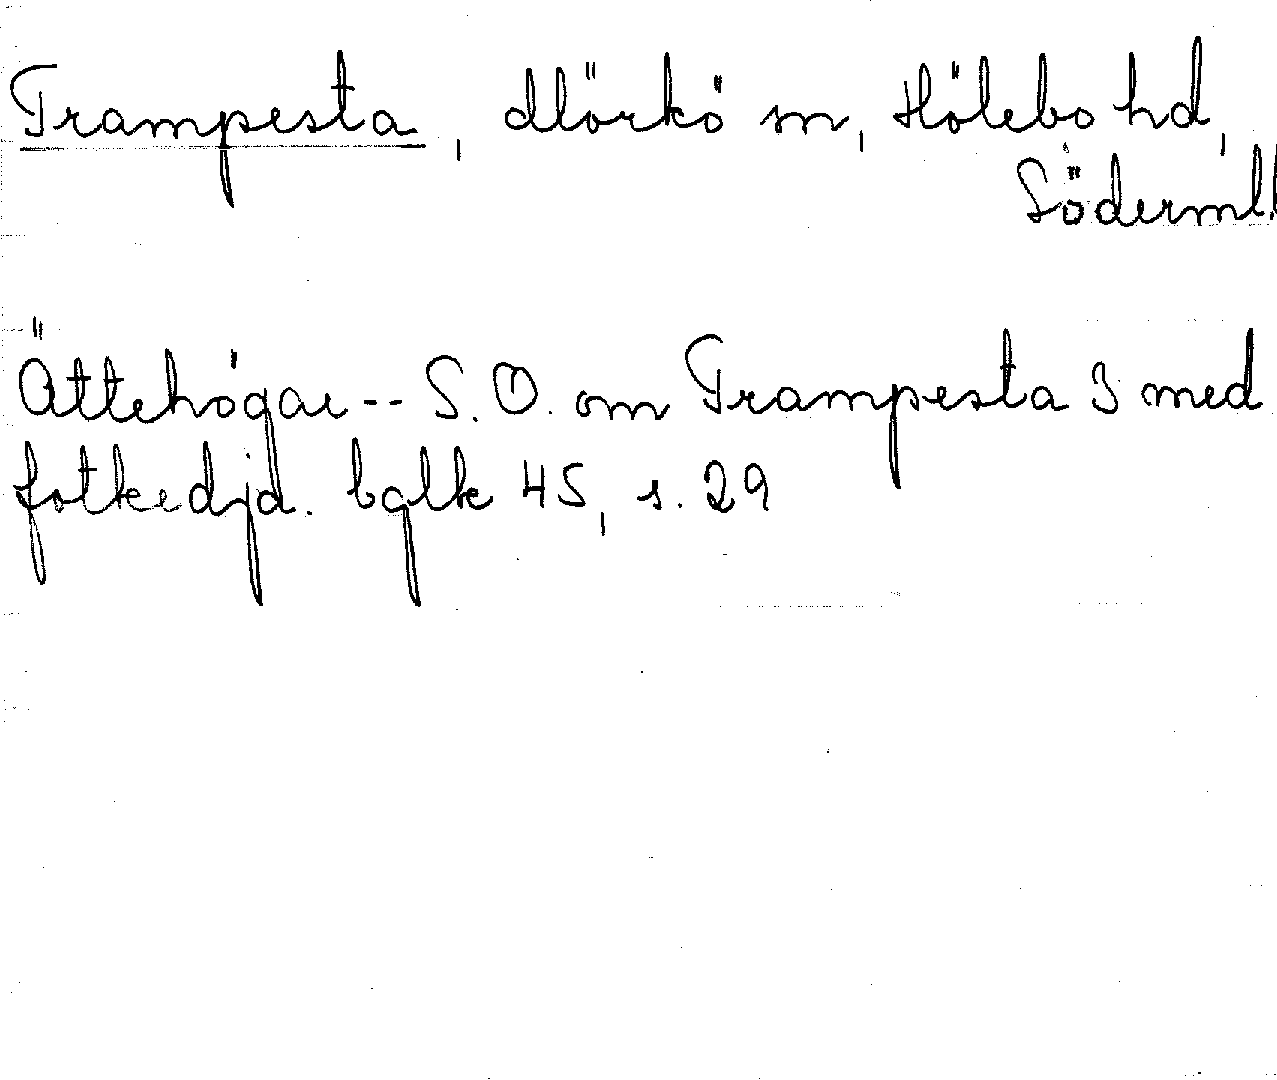 Trampesta, Mörkö sn, Hölebo hd,
Söderml.
Ättehögar -- S.O. om Trampesta 3 med
fotkedja. bglk 45, s. 29